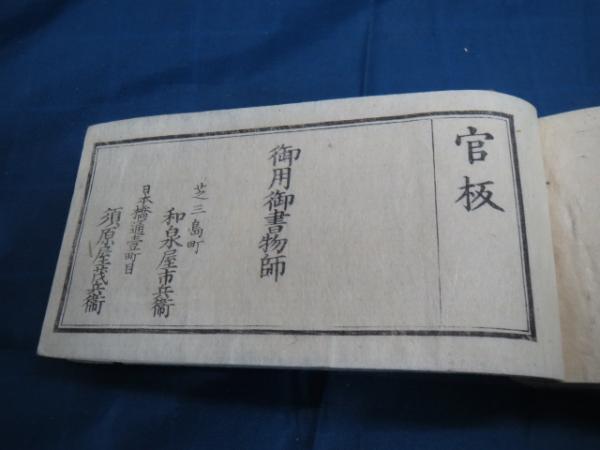 官板
御用御書物師
芝三島町
和泉屋市兵衞
日本橋通壹町目
須原屋茂兵衞